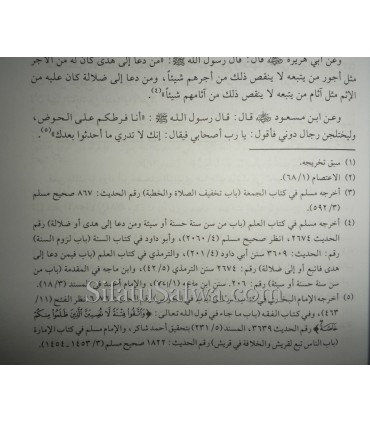 وعن أبي هريرة ﷺ قال: قال رسول الله ﷺ: «من دعا إلى هدى كان له من الأجر
مثل أجور من يتبعه لا ينقص ذلك من أجرهم شيئاً، ومن دعا إلى ضلالة كان عليه من
الإثم مثل آثام من يتبعه لا ينقص ذلك من آثامهم شيئاً»(٤).
وعن ابن مسعود قال: قال رسول الله ﷺ: «أنا فرطكم على الحوض،
وليختلجن رجال دوني فأقول: يا رب أصحابي فيقال: إنك لا تدري ما أحدثوا بعدك»(٥).
(١) سبق تخريجه.
(٢) الاعتصام (١/٦٨).
(٣) أخرجه مسلم في كتاب الجمعة (باب تخفيف الصلاة والخطبة) رقم الحديث: ٨٦٧ صحيح مسلم
(٣/٥٩٢).
(٤) أخرجه مسلم في كتاب العلم (باب من سن سنة حسنة أو سيئة ومن دعا إلى هدى أو ضلالة) رقم
الحديث ٢٦٧٤، انظر صحيح مسلم (٤/٢٠٦٠)، وأبو داود في كتاب السنة (باب لزوم السنة)
رقم الحديث: ٣٦٠٩ سنن أبي داود (٤/٢٠١)، والترمذي في كتاب العلم (باب فيمن دعا إلى
هدى فاتبع أو إلى ضلالة) رقم: ٢٦٧٤ سنن الترمذي (٥/٤٢)، وابن ماجه في المقدمة (باب من
سن سنة حسنة أو سيئة) رقم: ٢٠٦ سنن ابن ماجه (١/٧٤)، والإمام أحمد في المسند (٣/١٨).
(٥) أخرجه الإمام البخاري في انظر الفتح (١١/
٤٦٣)، وفي كتاب الفقه (باب ما جاء في قول الله تعالى: ﴿وَاتَّقُوا فِتْنَةً لَا تُصِيبَنَّ الَّذِينَ ظَلَمُوا مِنكُمْ
خَاصَّةً﴾ رقم الحديث ٣٦٣٩، المسند (٥/٢٣١) بتحقيق أحمد شاكر، والإمام مسلم في كتاب الإمارة
(باب الناس تبع لقريش والخلافة في قريش) رقم الحديث: ١٨٢٢ صحيح مسلم (٣/١٤٥٣-١٤٥٤).
SilatuSalwa.com